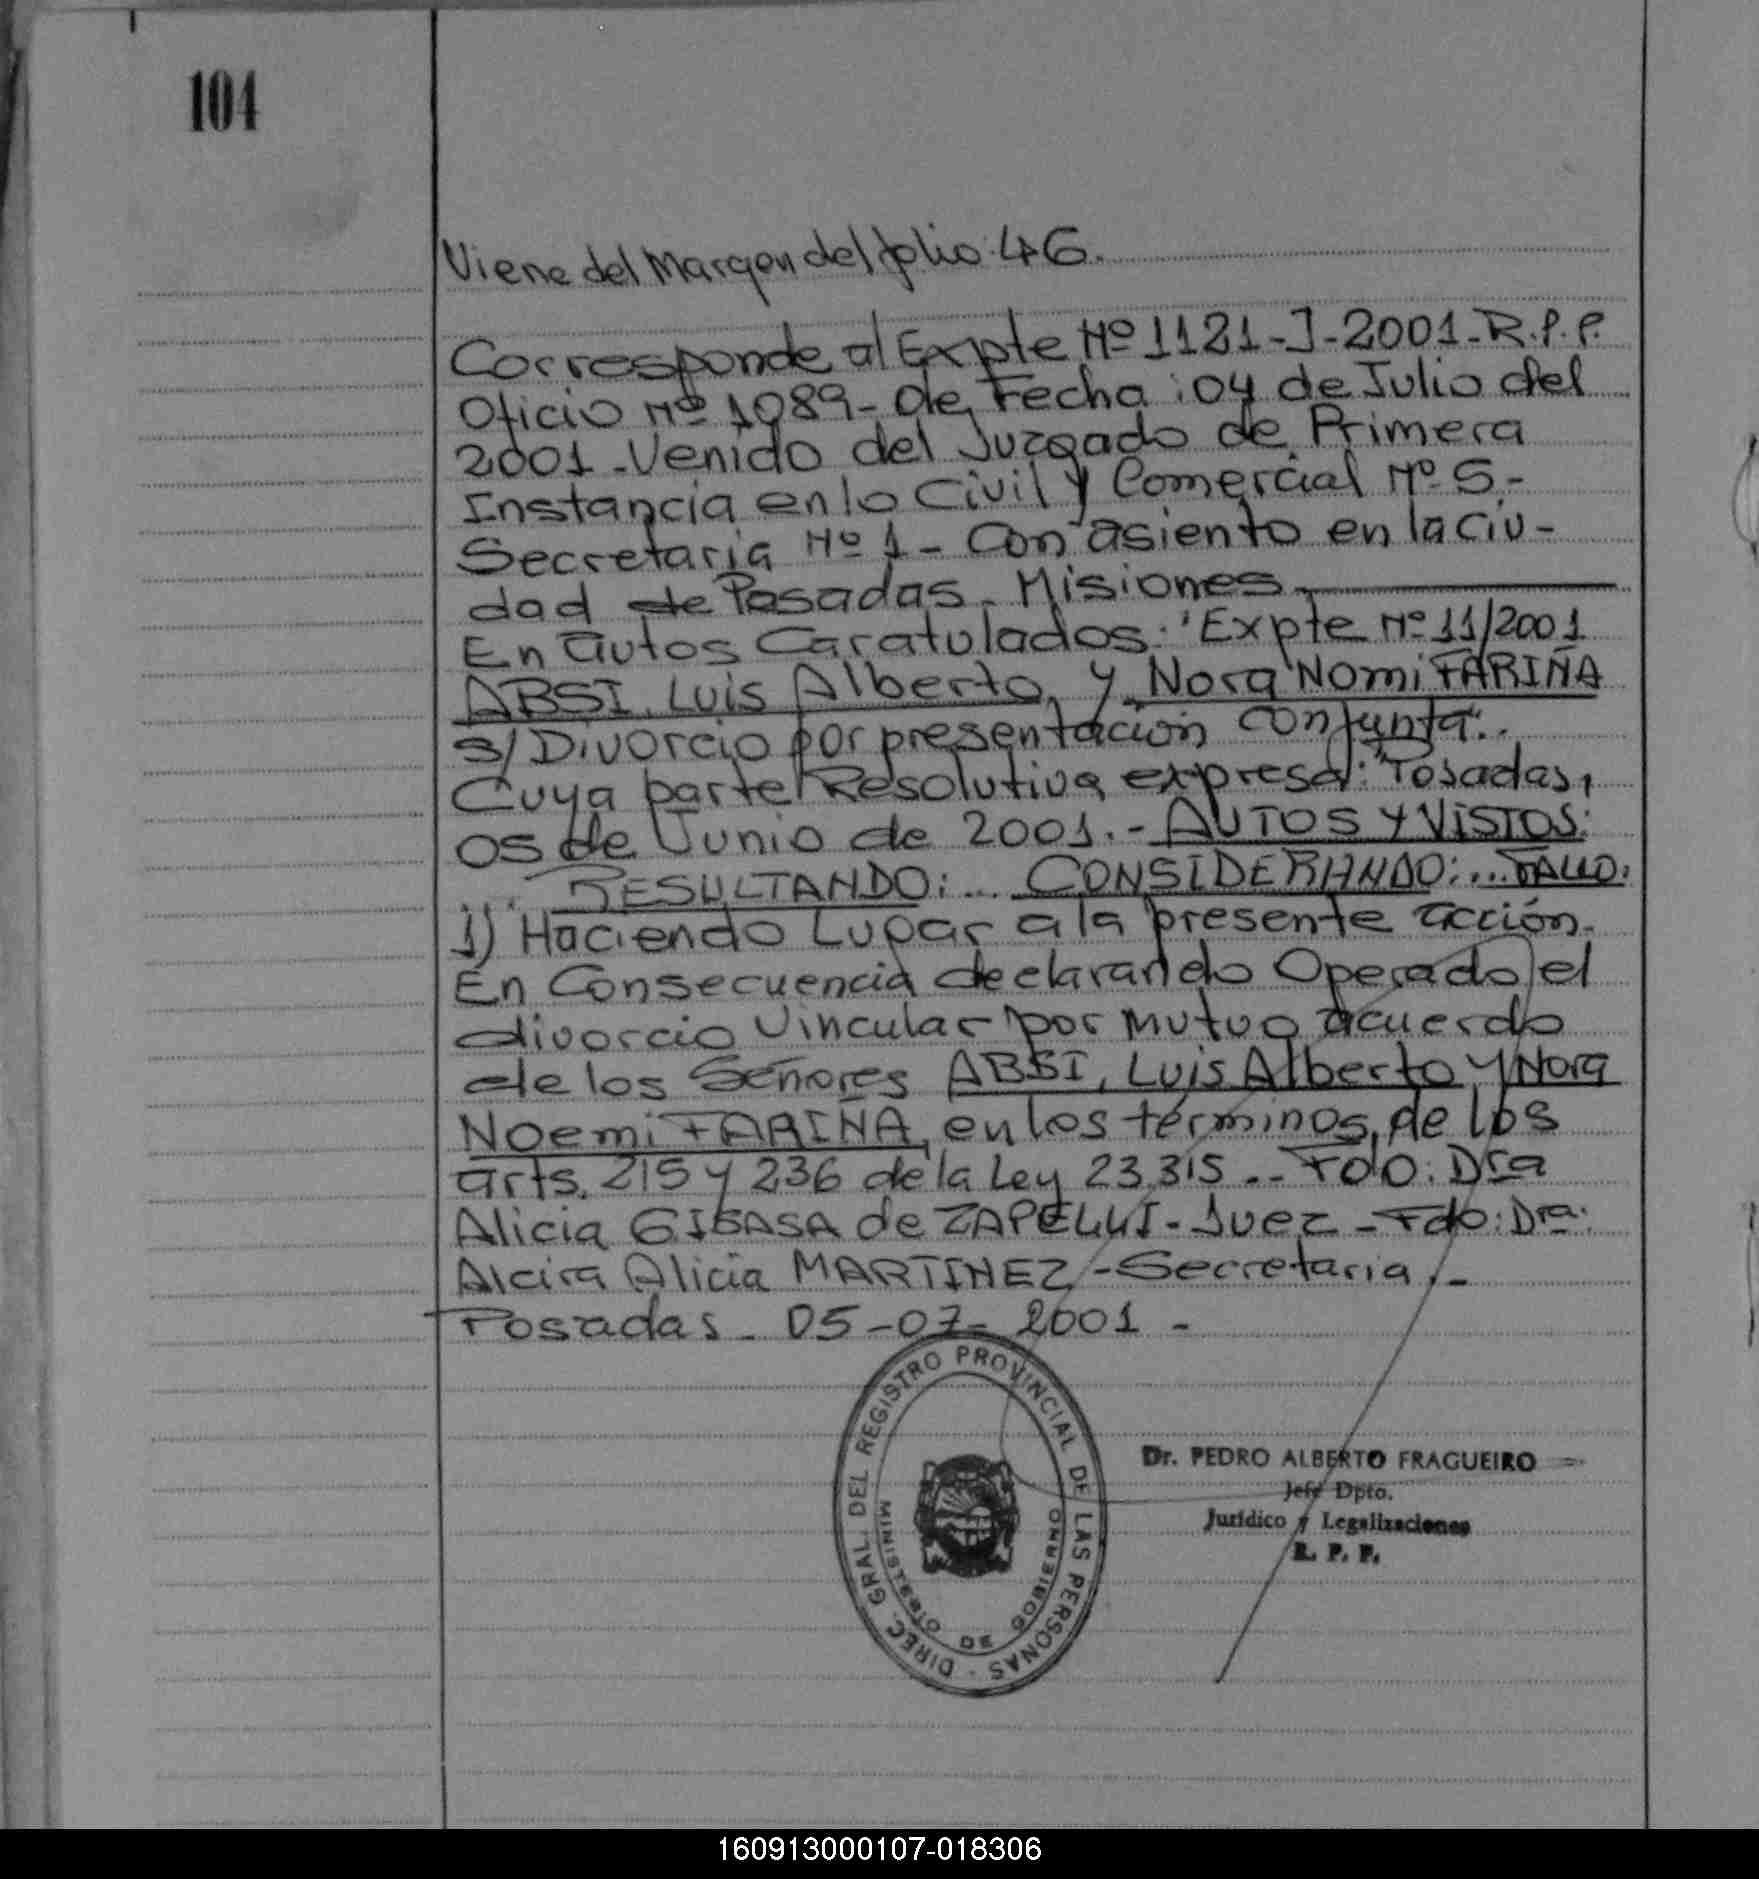 104
Viene del Margen del folio 46.
Corresponde al Expte Nº 1121-J-2001-R.P.P.
Oficio Nº 1089- de Fecha : 04 de Julio del
2001 - Venido del Juzgado de Primera
Instancia en lo Civil y Comercial Nº 5.-
Secretaria Nº 1 - Con asiento en la ciu-
dad de Posadas - Misiones.
En autos Caratulados: "Expte Nº 11/2001
ABSI, Luis Alberto, y Nora Nomi FARIÑA
s/ Divorcio por presentación conjunta".
Cuya parte Resolutiva expresa: "Posadas,
05 de Junio de 2001.- AUTOS Y VISTOS:
... RESULTANDO: ... CONSIDERANDO: ... FALLO:
1) Haciendo Lugar a la presente acción.
En Consecuencia declarando Operado el
divorcio Vincular por mutuo acuerdo
de los Señores ABSI, Luis Alberto y Nora
Noemi FARIÑA, en los términos, de los
arts. 215 y 236 de la Ley 23.315 .. Fdo: Dra
Alicia GISASA de ZAPELLI - Juez - Fdo: Dra:
Alcira Alicia MARTINEZ - Secretaria.-
Posadas - 05-07- 2001 -
DIREC. GRAL. DEL REGISTRO PROVINCIAL DE LAS PERSONAS -
MINISTERIO DE GOBIERNO
Dr. PEDRO ALBERTO FRAGUEIRO
Jefe Dpto.
Jurídico y Legalizaciones
R. P. P.
160913000107-018306